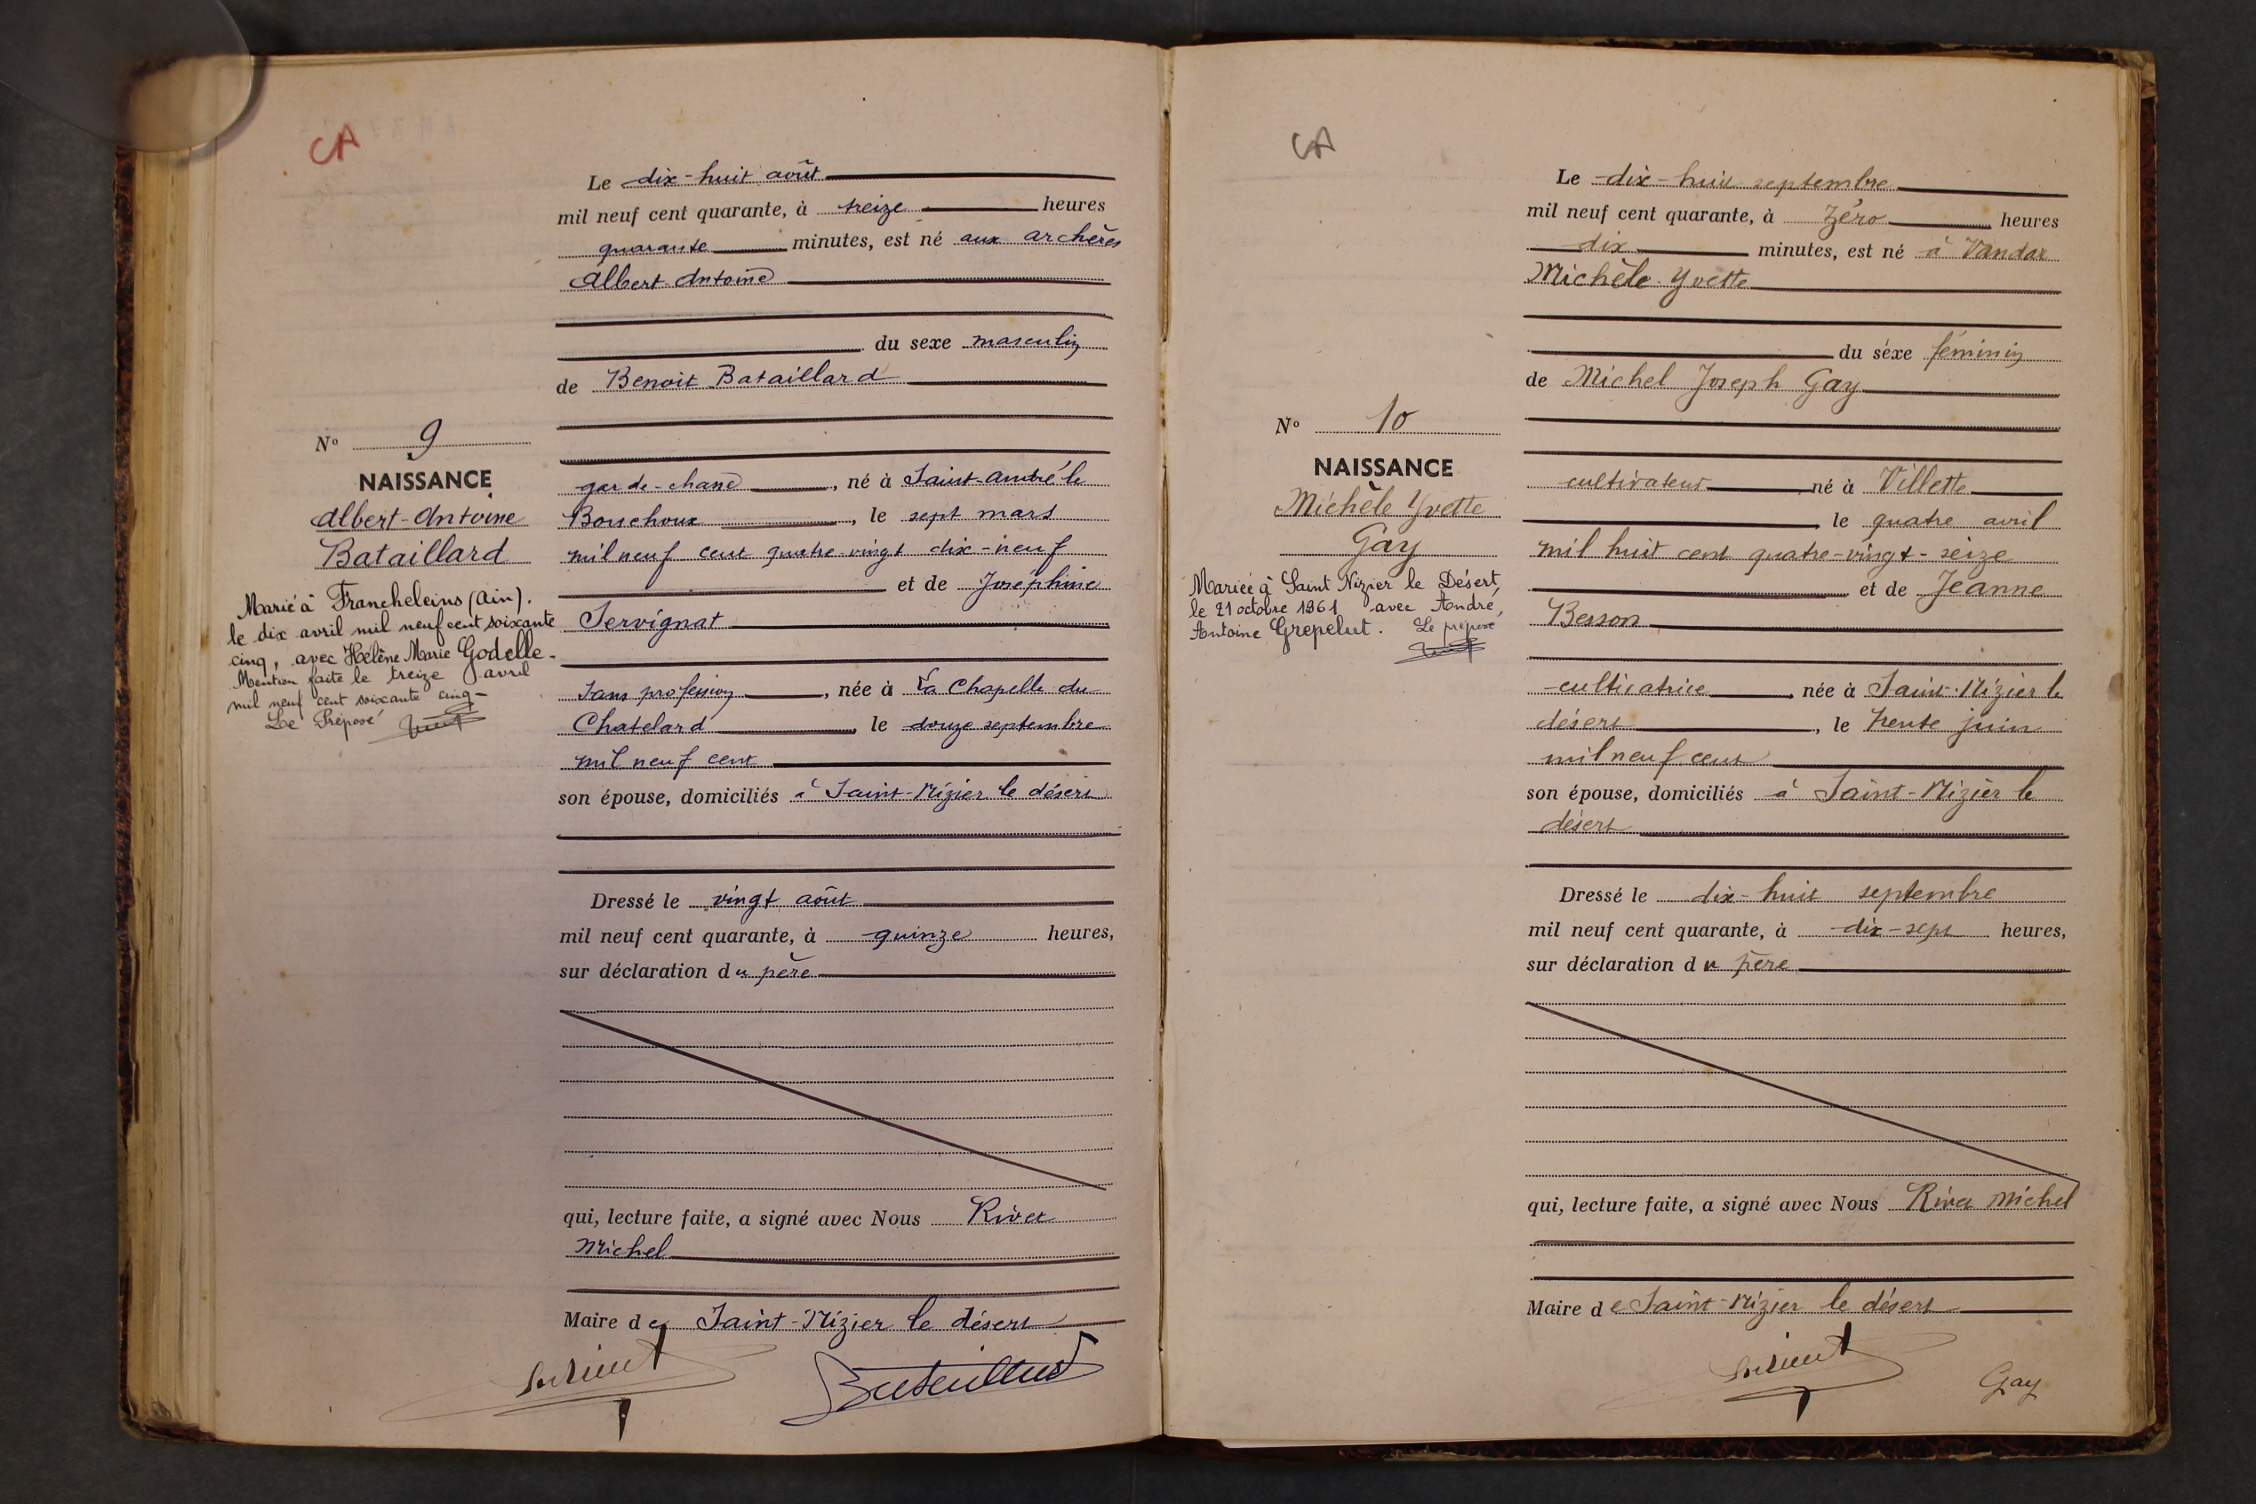 CA
Le dix-huit août
mil neuf cent quarante, à treize heures
quarante minutes, est né aux archères
Albert-Antoine
du sexe masculin
de Benoit Bataillard
N° 9
NAISSANCE
Albert-Antoine
Bataillard
garde-chasse, né à Saint-André le
Bouchoux, le sept mars
mil neuf cent quatre-vingt dix-neuf
et de Joséphine
Servignat
Marié à Francheleins (Ain).
le dix avril mil neuf cent soixante
cinq, avec Hélène Marie Godelle-
Mention faite le treize avril
mil neuf cent soixante cinq-
Le Préposé
sans profession, née à La Chapelle du
Chatelard, le douze septembre
mil neuf cent
son épouse, domiciliés à Saint-Nizier le désert
Dressé le vingt août
mil neuf cent quarante, à quinze heures,
sur déclaration du père
qui, lecture faite, a signé avec Nous Rivet
Michel
Maire de Saint-Nizier le désert
Bataillard
CA
Le dix-huit septembre
mil neuf cent quarante, à Zéro heures
dix minutes, est né à Vandar
Michèle Yvette
du séxe féminin
de Michel Joseph Gay
N° 10
NAISSANCE
Michèle Yvette
Gay
Mariée à Saint Nizier le Désert,
le 21 octobre 1961 avec André,
Antoine Grepelut. Le préposé
cultivateur né à Villette
le quatre avril
mil huit cent quatre-vingt-seize
et de Jeanne
Besson
cultivatrice, née à Saint-Nizier le
désert, le trente juin
mil neuf cent
son épouse, domiciliés à Saint-Nizier le
désert
Dressé le dix-huit septembre
mil neuf cent quarante, à dix-sept heures,
sur déclaration du père
qui, lecture faite, a signé avec Nous Rivet Michel
Maire de Saint-Nizier le désert
Gay